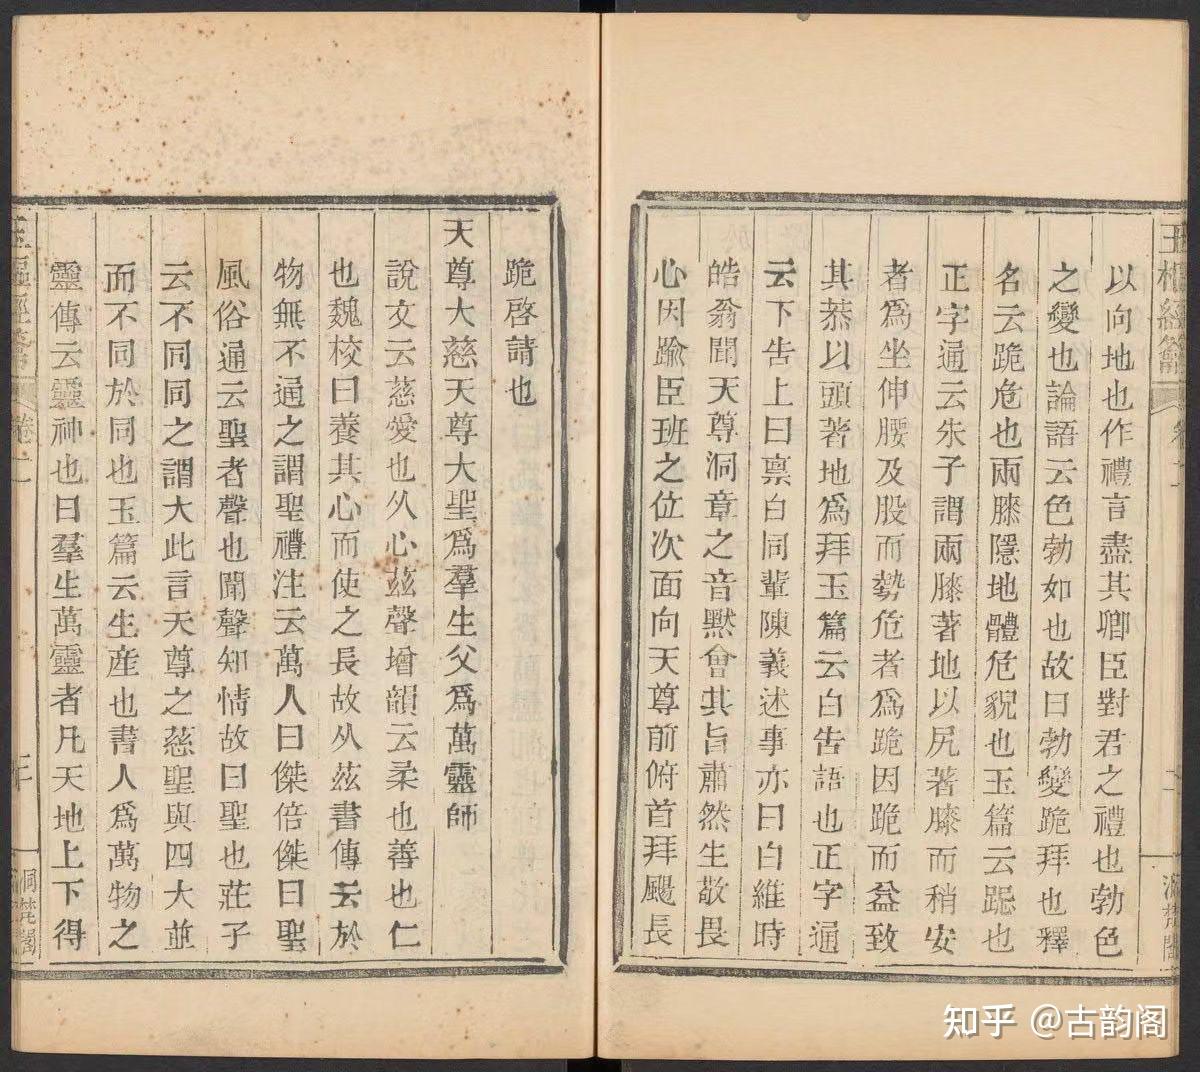 玉樞經籥
以向地也作禮言盡其卿臣對君之禮也勃色
之變也論語云色勃如也故曰勃變跪拜也釋
名云跪危也兩膝隱地體危䫉也玉篇云跽也
正字通云朱子謂兩膝著地以尻著膝而稍安
者爲坐伸腰及股而勢危者爲跪因跪而益致
其恭以頭著地爲拜玉篇云白告語也正字通
云下告上曰稟白同輩陳義述事亦曰白維時
皓翁聞天尊洞章之音默會其旨肅然生敬畏
心因踰臣班之位次面向天尊前俯首拜颺長
跪啓請也
天尊大慈天尊大聖爲羣生父爲萬靈師
說文云慈愛也从心茲聲增韻云柔也善也仁
也魏校曰養其心而使之長故从茲書傳云於
物無不通之謂聖禮注云萬人曰傑倍傑曰聖
風俗通云聖者聲也聞聲知情故曰聖也莊子
云不同同之謂大此言天尊之慈聖與四大並
而不同於同也玉篇云生産也書人爲萬物之
靈傳云靈神也曰羣生萬靈者凡天地上下得
知乎 @古韵阁